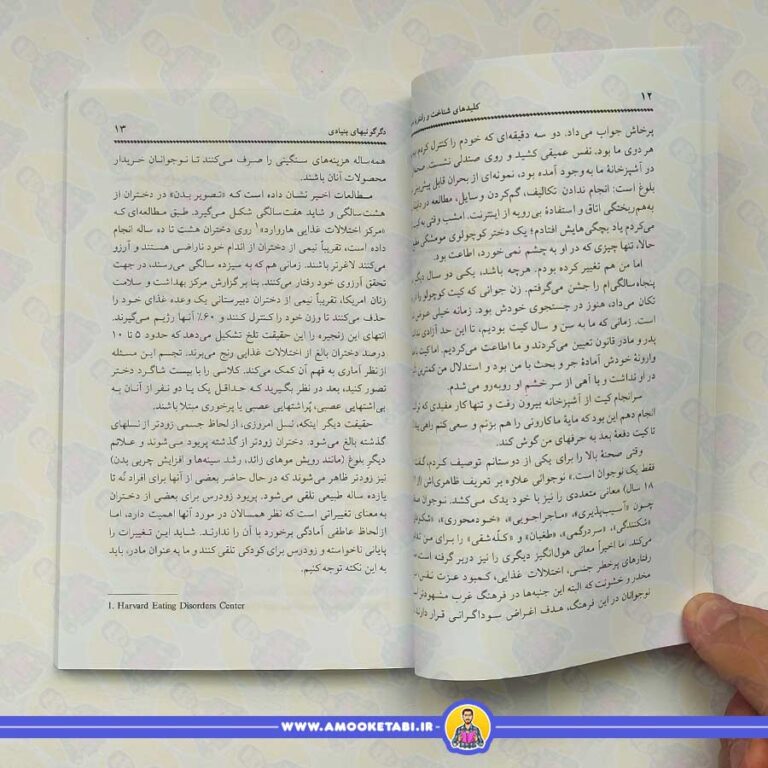 ۱۲
کلیدهای شناخت و رفتار با
پرخاش جواب می‌داد. دو سه دقیقه‌ای که خودم را کنترل کردم
هر دوی ما بود. نفس عمیقی کشید و روی صندلی نشست.
در آشپزخانهٔ ما به وجود آمده بود، نمونه‌ای از بحران قابل
بلوغ است: انجام ندادن تکالیف، گم‌کردن وسایل، مطالعه در
به‌هم‌ریختگی اتاق و استفادهٔ بی‌رویه از اینترنت. امشب وقتی به
می‌کردم یاد بچگی‌هایش افتادم؛ یک دختر کوچولوی موفشگر
حالا، تنها چیزی که در او به چشم نمی‌خورد، اطاعت بود.
اما من هم تغییر کرده بودم. هرچه باشد، یکی دو سال دیگر
پنجاه‌سالگی‌ام را جشن می‌گرفتم. زن جوانی که کیت کوچولو را
تکان می‌داد، هنوز در جستجوی خودش بود. زمانه خیلی عوض
است. زمانی که ما به سن و سال کیت بودیم، تا این حد آزادی
پدر و مادر قانون تعیین می‌کردند و ما اطاعت می‌کردیم. اما کیت
وارونهٔ خودش آمادهٔ جر و بحث با من بود و استدلال من کمترین
در او نداشت و با آهی از سر خشم او روبه‌رو می‌شدم.
سرانجام کیت از آشپزخانه بیرون رفت و تنها کار مفیدی که
انجام دهم این بود که مایهٔ ماکارونی را هم بزنم و سعی کنم راهی
تا کیت دفعهٔ بعد به حرفهای من گوش کند.
وقتی صحنهٔ بالا را برای یکی از دوستانم توصیف کردم،
فقط یک نوجوان است.» نوجوانی علاوه بر تعریف ظاهری‌اش
۱۸ سال) معانی متعددی را نیز با خود یدک می‌کشد. نوجوان
چون «آسیب‌پذیری»، «ماجراجویی»، «خودمحوری»،
«شکنندگی»، «سردرگمی»، «طغیان» و «کله‌شقی» را برای من
می‌کند اما اخیراً معانی هول‌انگیز دیگری را نیز دربر گرفته است
رفتارهای پرخطر جنسی، اختلالات غذایی، کمبود عزت نفس،
مخدر و خشونت که البته این جنبه‌ها در فرهنگ غرب مشهودتر
نوجوانان در این فرهنگ، هدف اغراض سوداگرانی قرار دارند
دگرگونیهای بنیادی
۱۳
همه‌ساله هزینه‌های سنگینی را صرف می‌کنند تا نوجوانان خریدار
محصولات آنان باشند.
مطالعات اخیر نشان داده است که «تصویر بدن» در دختران از
هشت‌سالگی و شاید هفت‌سالگی شکل می‌گیرد. طبق مطالعه‌ای که
«مرکز اختلالات غذایی هاروارد»۱ روی دختران هشت تا ده ساله انجام
داده است، تقریباً نیمی از دختران از اندام خود ناراضی هستند و آرزو
می‌کنند لاغرتر باشند. زمانی هم که به سیزده سالگی می‌رسند، در جهت
تحقق آرزوی خود رفتار می‌کنند. بنا بر گزارش مرکز بهداشت و سلامت
زنان امریکا، تقریباً نیمی از دختران دبیرستانی یک وعده غذای خود را
حذف می‌کنند تا وزن خود را کنترل کنند و ۶۰٪ آنها رژیم می‌گیرند.
انتهای این زنجیره را این حقیقت تلخ تشکیل می‌دهد که حدود ۵ تا ۱۰
درصد دختران بالغ از اختلالات غذایی رنج می‌برند. تجسم این مسئله
از نظر آماری به فهم آن کمک می‌کند. کلاسی را با بیست شاگرد دختر
تصور کنید، بعد در نظر بگیرید که حداقل یک یا دو نفر از آنان به
بی‌اشتهایی عصبی، پُراشتهایی عصبی یا پرخوری مبتلا باشند.
حقیقت دیگر اینکه، نسل امروزی، از لحاظ جسمی زودتر از نسلهای
گذشته بالغ می‌شود. دختران زودتر از گذشته پریود می‌شوند و علائم
دیگر بلوغ (مانند رویش موهای زائد، رشد سینه‌ها و افزایش چربی بدن)
نیز زودتر ظاهر می‌شوند که در حال حاضر بعضی از آنها برای افراد نُه تا
یازده ساله طبیعی تلقی می‌شود. پریود زودرس برای بعضی از دختران
به معنای تغییراتی است که نظر همسالان در مورد آنها اهمیت دارد، اما
از لحاظ عاطفی آمادگی برخورد با آن را ندارند. شاید این تغییرات را
پایانی ناخواسته و زودرس برای کودکی تلقی کنند و ما به عنوان مادر، باید
به این نکته توجه کنیم.
1. Harvard Eating Disorders Center
WWW.AMOOKETABI.IR